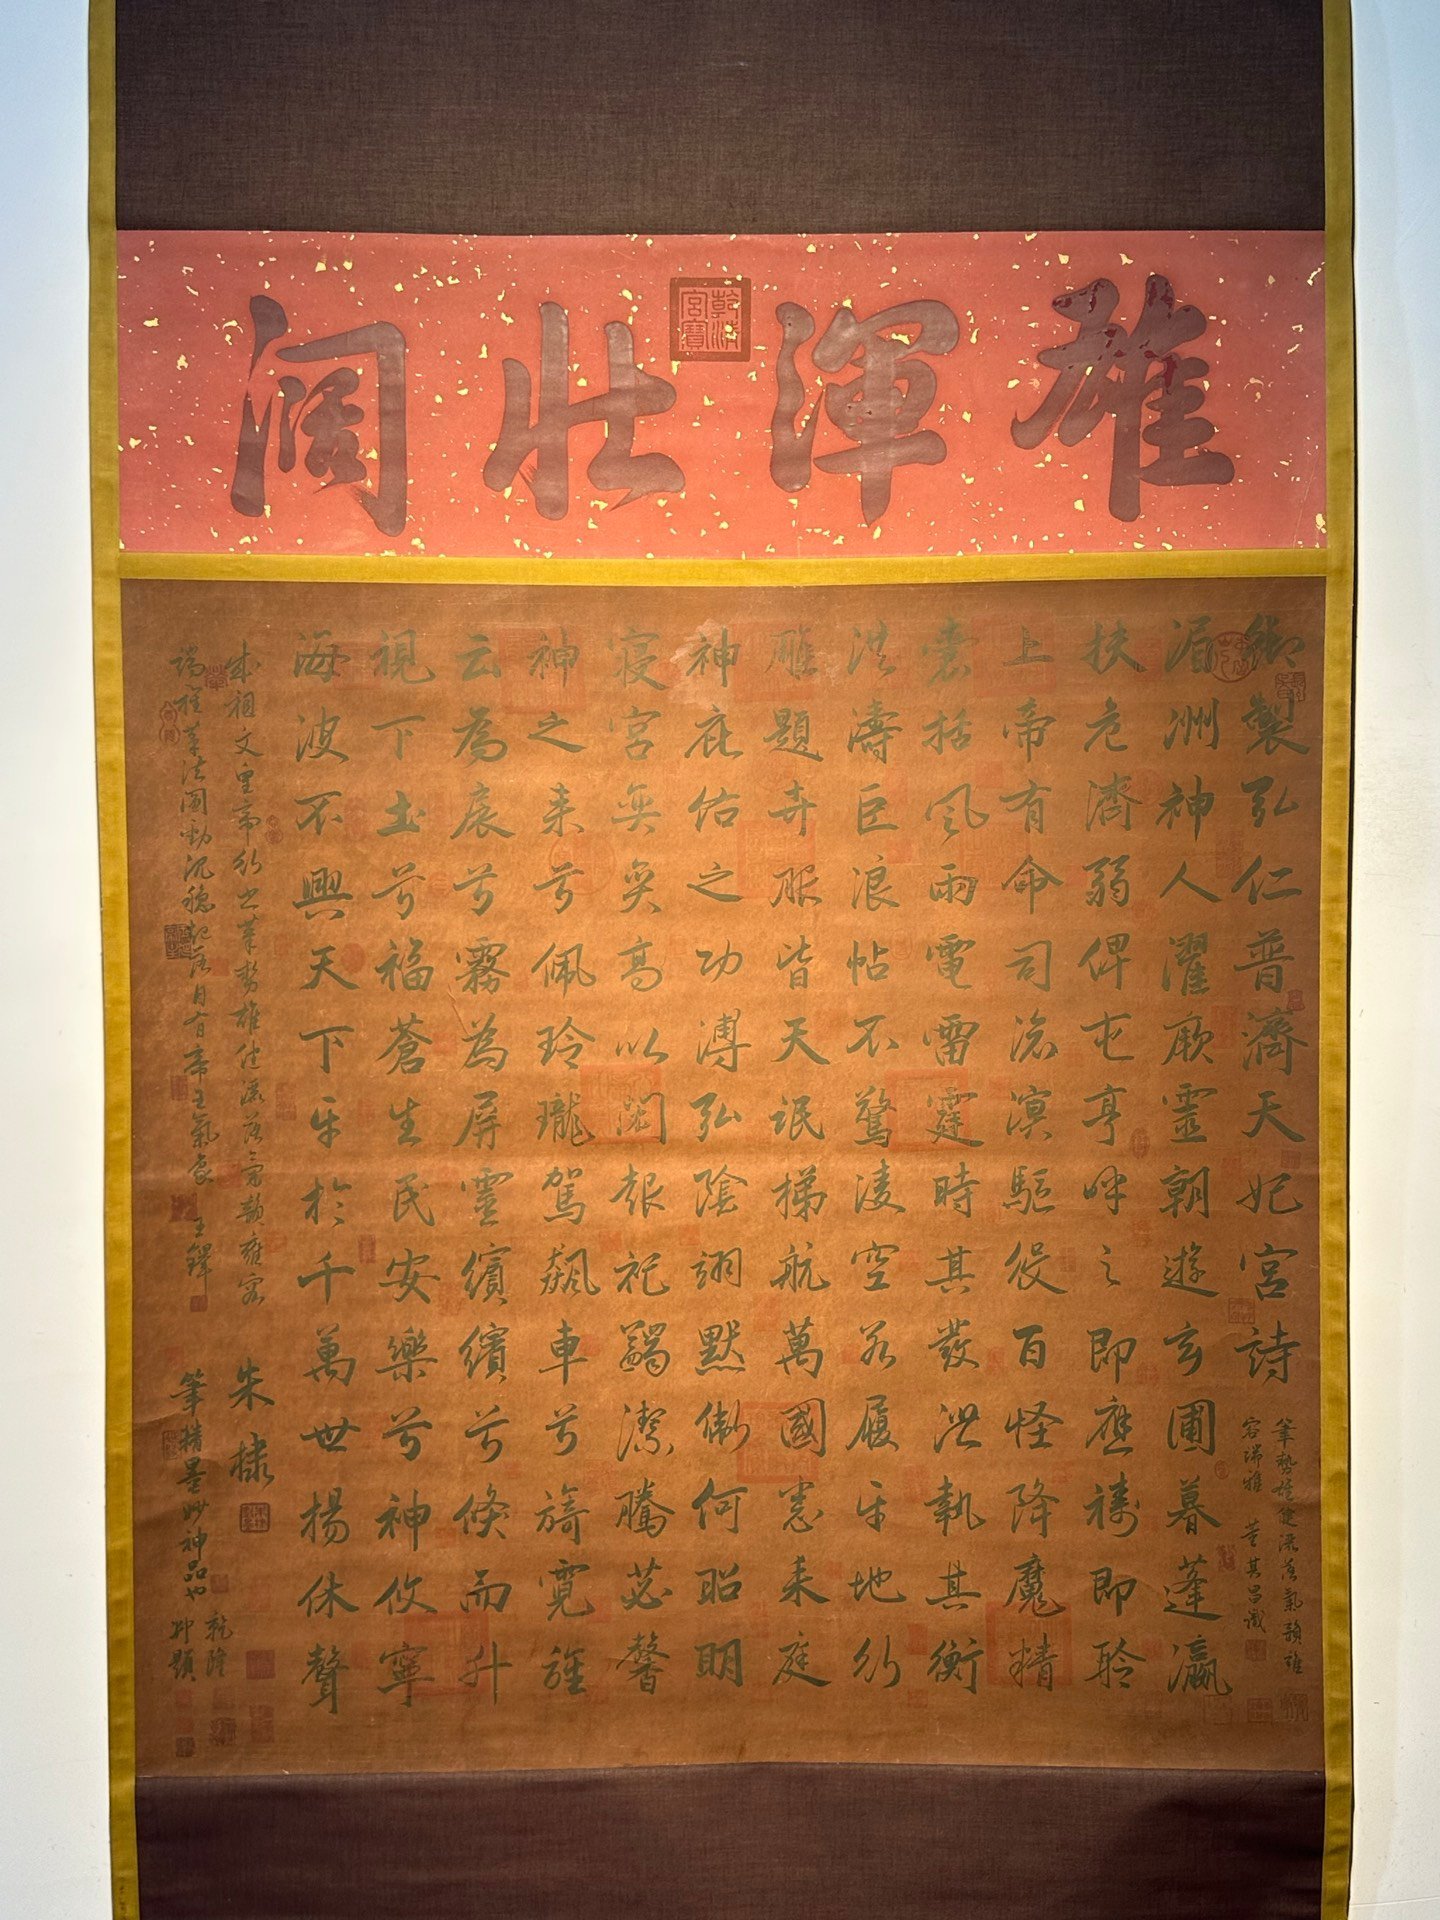 雄渾壯闊
乾清宮寶
御製弘仁普濟天妃宮詩
湄洲神人濯厥靈朝遊玄圃暮蓬瀛
扶危濟弱俾屯亨呼之即應禱即聆
上帝有命司滄溟驅役百怪降魔精
囊括風雨電雷霆時其發泄執其衡
洪濤巨浪帖不驚凌空若履平地行
雕題卉服皆天氓梯航萬國悉來庭
神庇佑之功溥弘陰翊默衛何昭明
寢宮奕奕高以閎報祀蠲潔騰苾馨
神之來兮佩玲瓏駕飆車兮旖霓旌
云為扆兮霧為屏靈繽繽兮倏而升
視下土兮福蒼生民安樂兮神攸寧
海波不興天下平於千萬世揚休聲
朱棣
成祖文皇帝行書筆勢雄健灑落氣韻雍容
端雅筆法圓勁沉穩起落自有帝王氣象 王鐸
筆精墨妙神品也
乾隆
御題
筆勢雄健灑落氣韻雍
容端雅 董其昌識